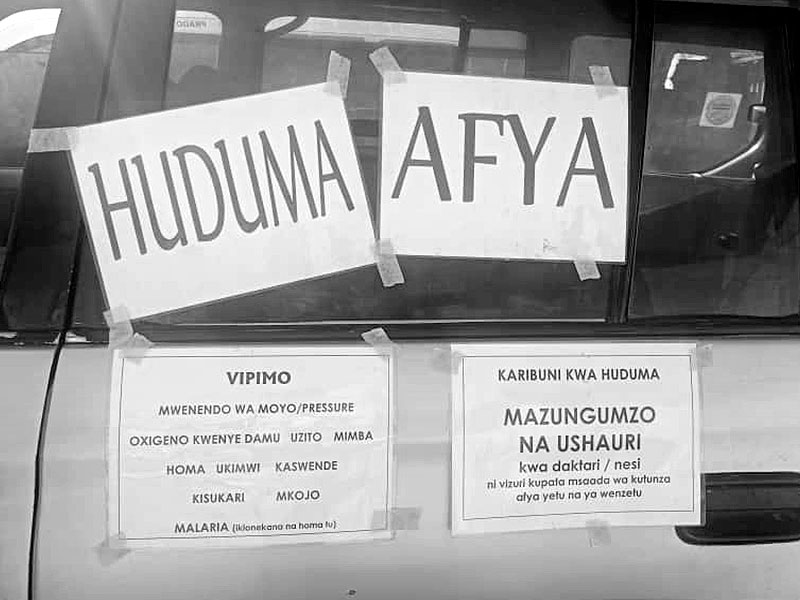 HUDUMA
AFYA
VIPIMO
MWENENDO WA MOYO/PRESSURE
OXIGENO KWENYE DAMU UZITO MIMBA
HOMA UKIMWI KASWENDE
KISUKARI MKOJO
MALARIA (ikionekana na homa tu)
KARIBUNI KWA HUDUMA
MAZUNGUMZO
NA USHAURI
kwa daktari / nesi
ni vizuri kupata msaada wa kutunza
afya yetu na ya wenzetu
PRADO